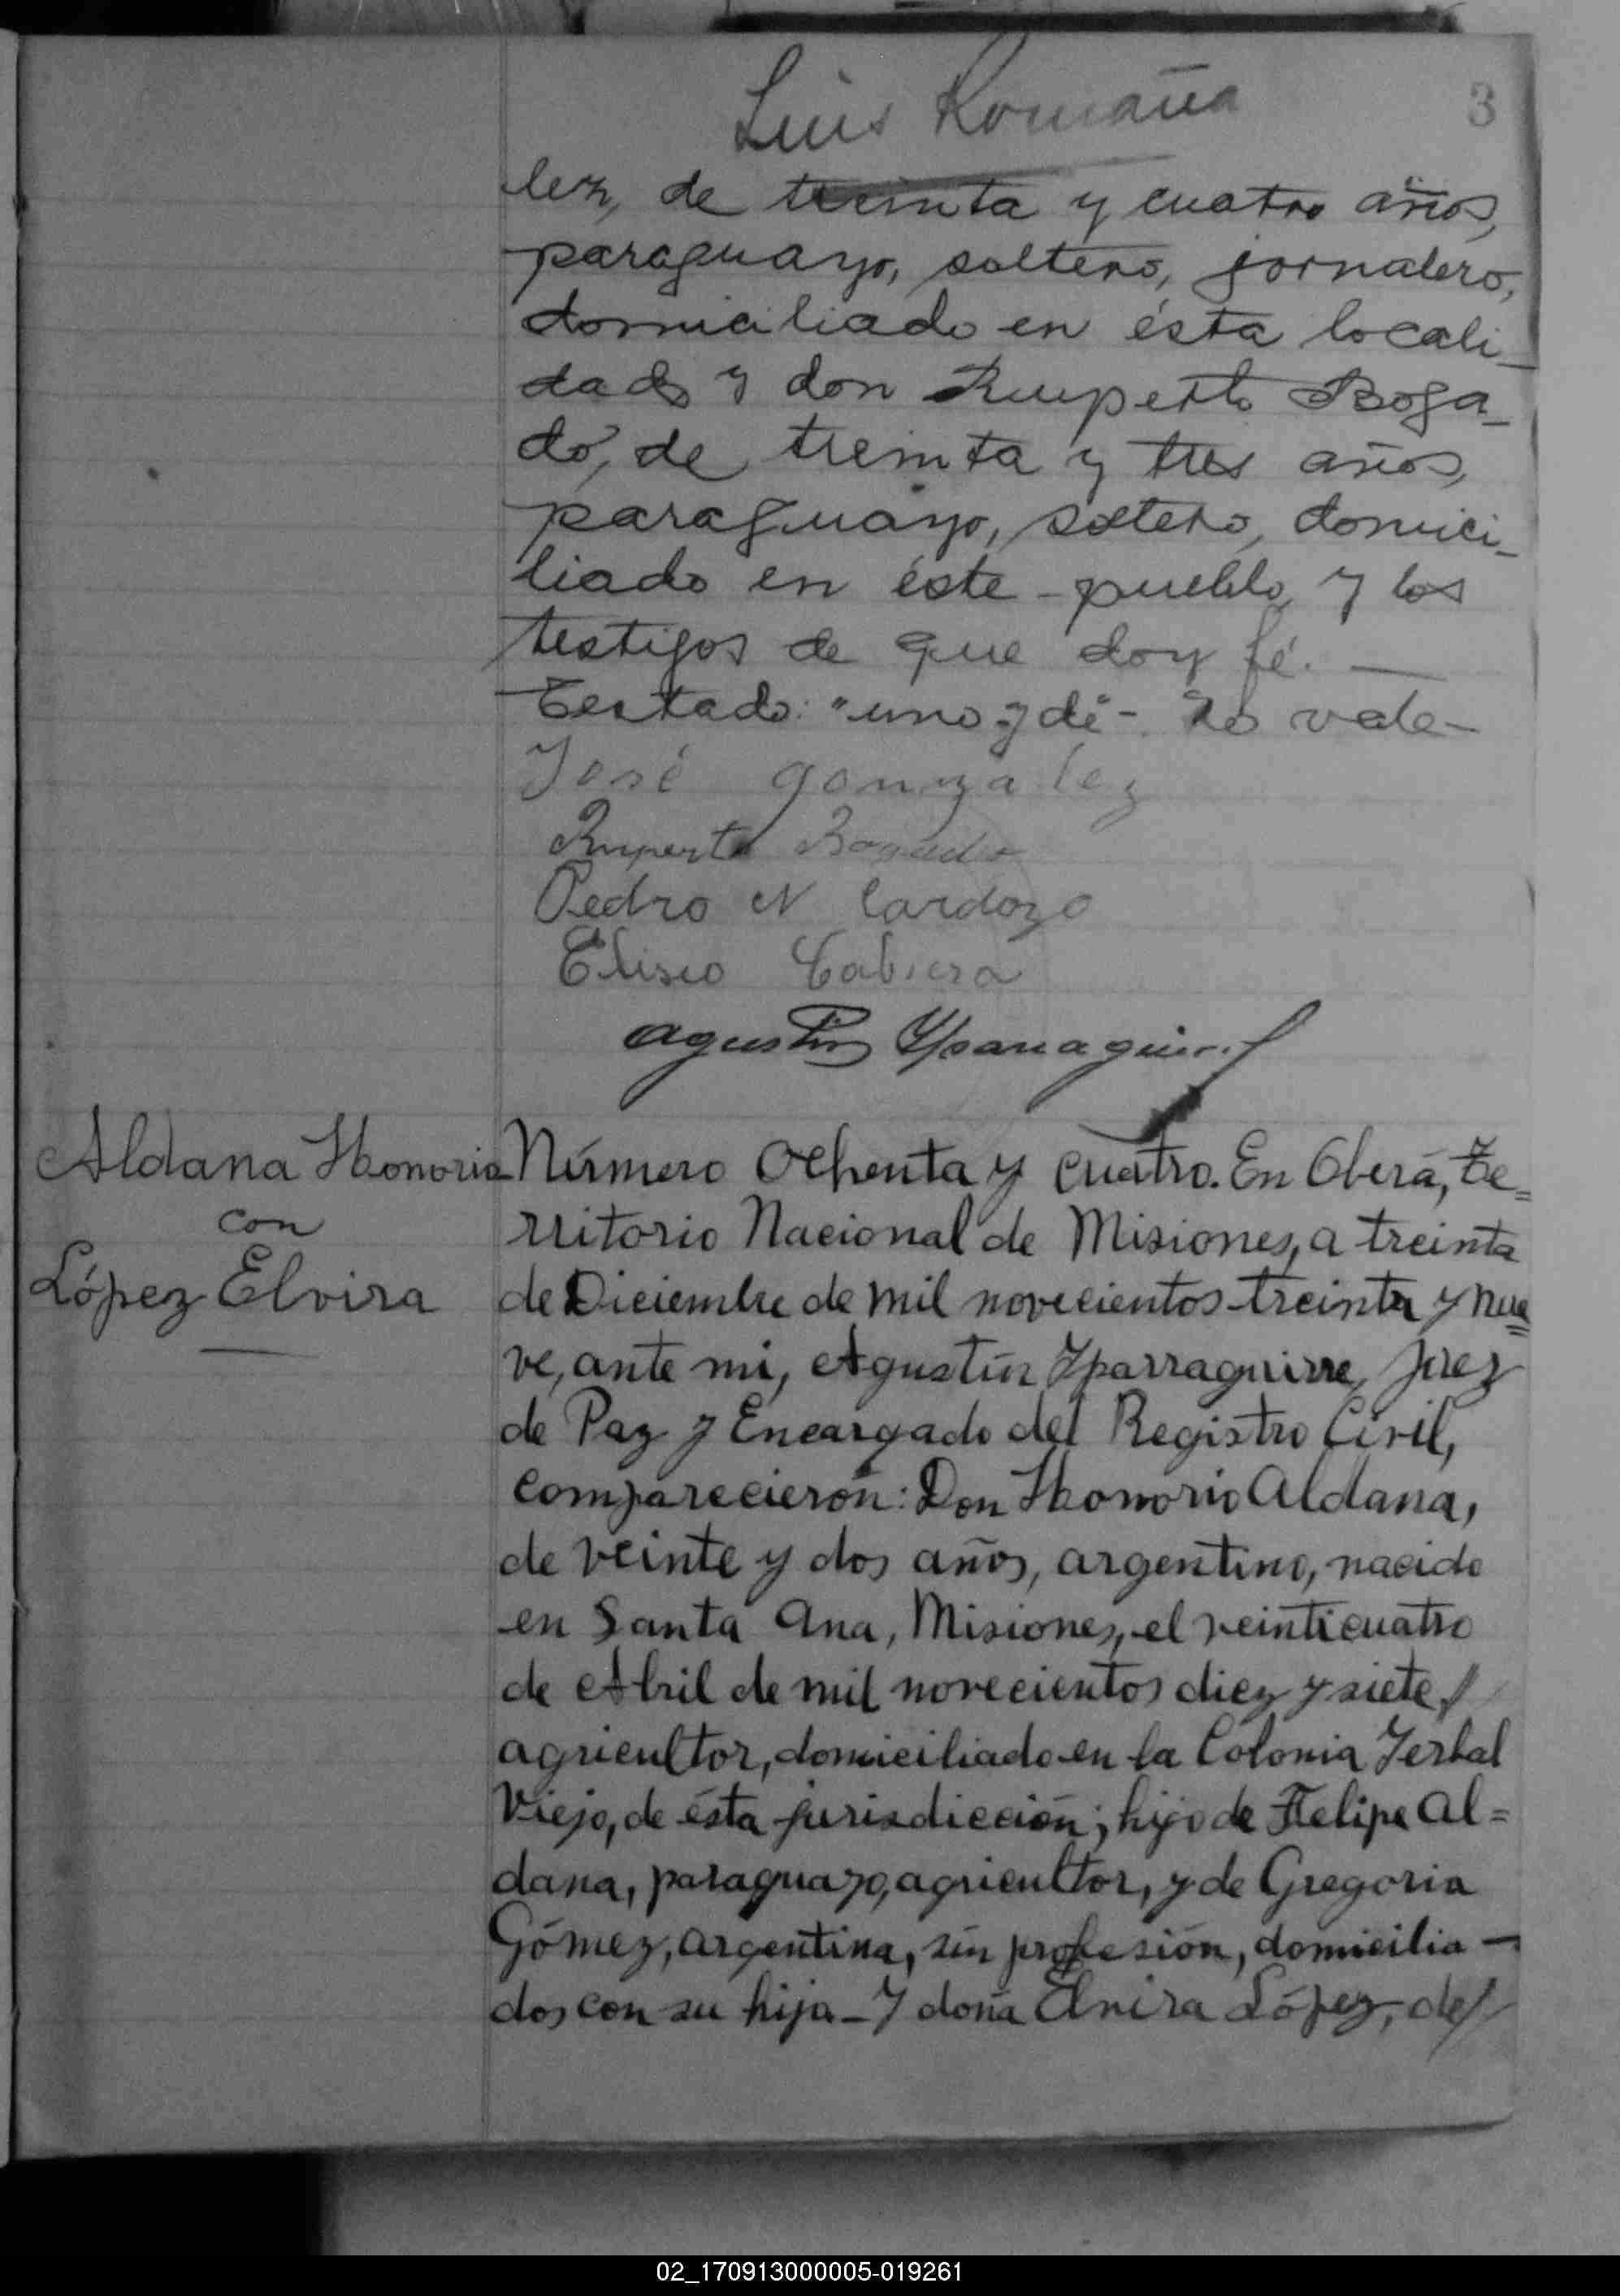 3
Luis Romaña
lez, de treinta y cuatro años,
paraguayo, soltero, jornalero,
domiciliado en ésta locali-
dad y don Ruperto Boga-
do, de treinta y tres años,
paraguayo, soltero, domici-
liado en éste pueblo y los
testigos de que doy fé.—
Testado: "uno y de"- No vale-
José gonzalez
Ruperto Bogado
Pedro N Cardozo
Eliseo Cabrera
Agustin Yparraguirre
Aldana Honorio
con
López Elvira
Número Ochenta y cuatro. En Oberá, Te=
rritorio Nacional de Misiones, a treinta
de Diciembre de mil novecientos treinta y nue=
ve, ante mi, Agustín Yparraguirre, Juez
de Paz y Encargado del Registro Civil,
comparecieron: Don Honorio Aldana,
de veinte y dos años, argentino, nacido
en Santa Ana, Misiones, el veinticuatro
de Abril de mil novecientos diez y siete,/
agricultor, domiciliado en la Colonia Yerbal
Viejo, de ésta jurisdicción; hijo de Felipe Al=
dana, paraguayo, agricultor, y de Gregoria
Gómez, argentina, sin profesión, domicilia-
dos con su hijo_ Y doña Elvira López, de/
02_170913000005-019261